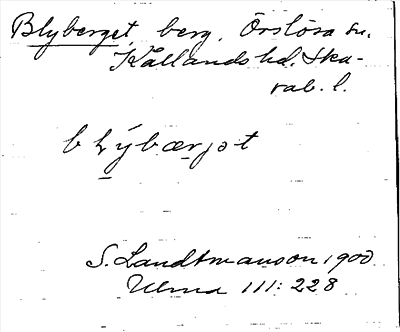 Blyberget, berg. Örslösa sn.
Kållands hd. Ska-
rab. l.
blýbærjət
S. Landtmanson 1900
Ulma 111: 228